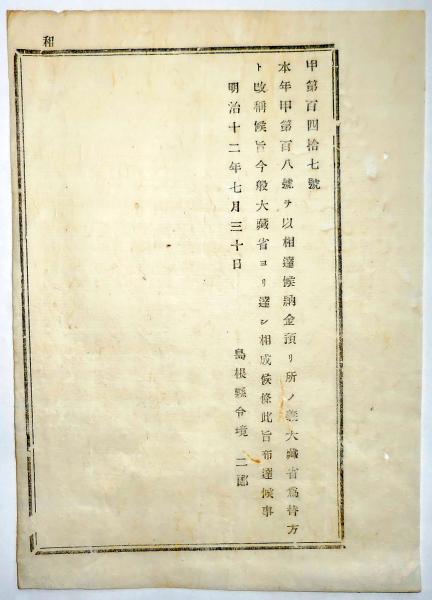 甲第百四拾七號
本年甲第百八號ヲ以相達候納金預リ所ノ義大藏省爲替方
ト改稱候旨今般大藏省ヨリ達シ相成候條此旨布達候事
明治十二年七月三十日
島根縣令境二郎
和